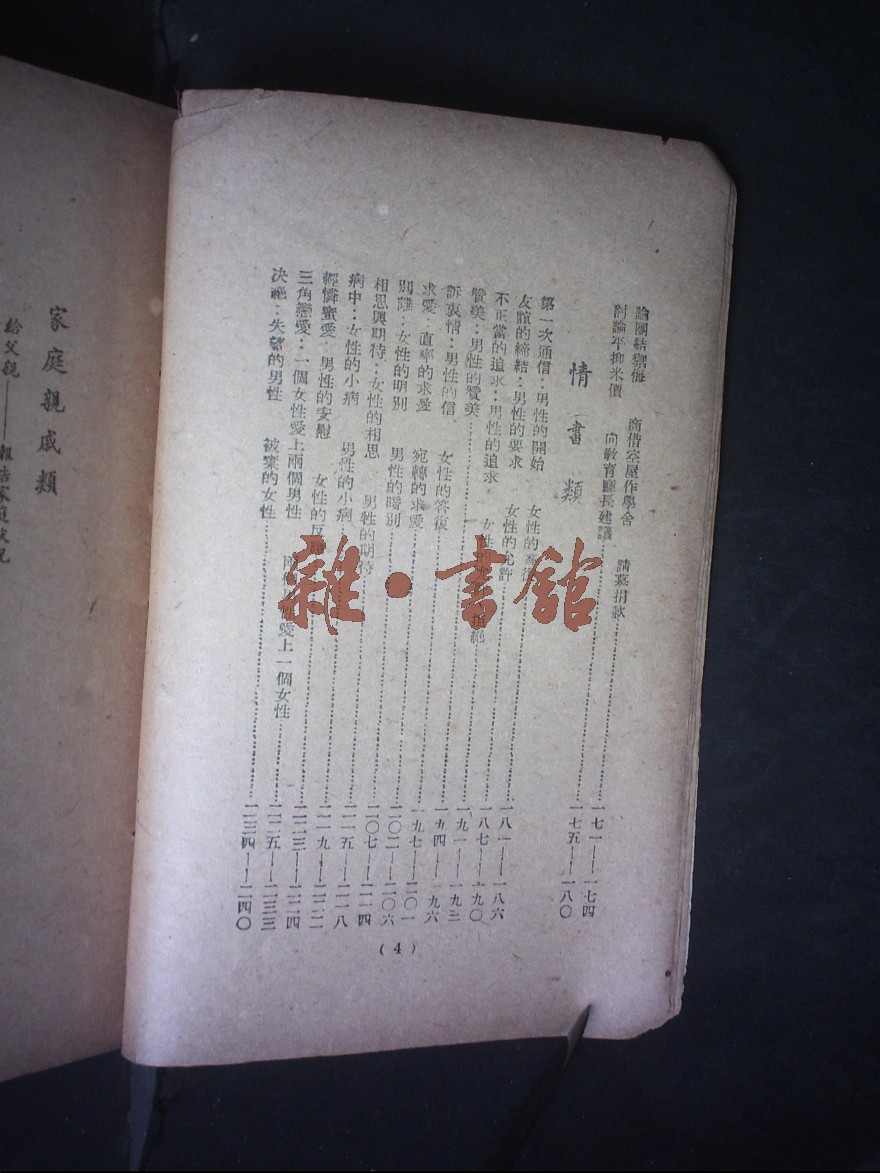 論團結禦侮　商借空屋作學舍　請募捐款……一七一——一七四
討論平抑米價　向教育廳長建議……一七五——一八〇
情書類
第一次通信：男性的開始　女性的答復……一八一——一八六
友誼的締結：男性的要求　女性的允許……一八七——一九〇
不正當的追求：男性的追求　女性的拒絕……一九一——一九三
讚美：男性的讚美……一九四——一九六
訴衷情：男性的信　女性的答復……一九七——二〇一
求愛：直率的求愛　宛轉的求愛……二〇二——二〇六
別離：女性的明別　男性的暗別……二〇七——二一四
相思與期待：女性的相思　男性的期待……二一五——二一八
病中：女性的小病　男性的小病……二一九——二二二
輕憐蜜愛：男性的安慰　女性的反……二二三——二二四
三角戀愛：一個女性愛上兩個男性　兩個男性愛上一個女性……二二五——二三三
決絕：失望的男性　被棄的女性……二三四——二四〇
(4)
家庭親戚類
給父親——報告家庭狀況
雜·書館